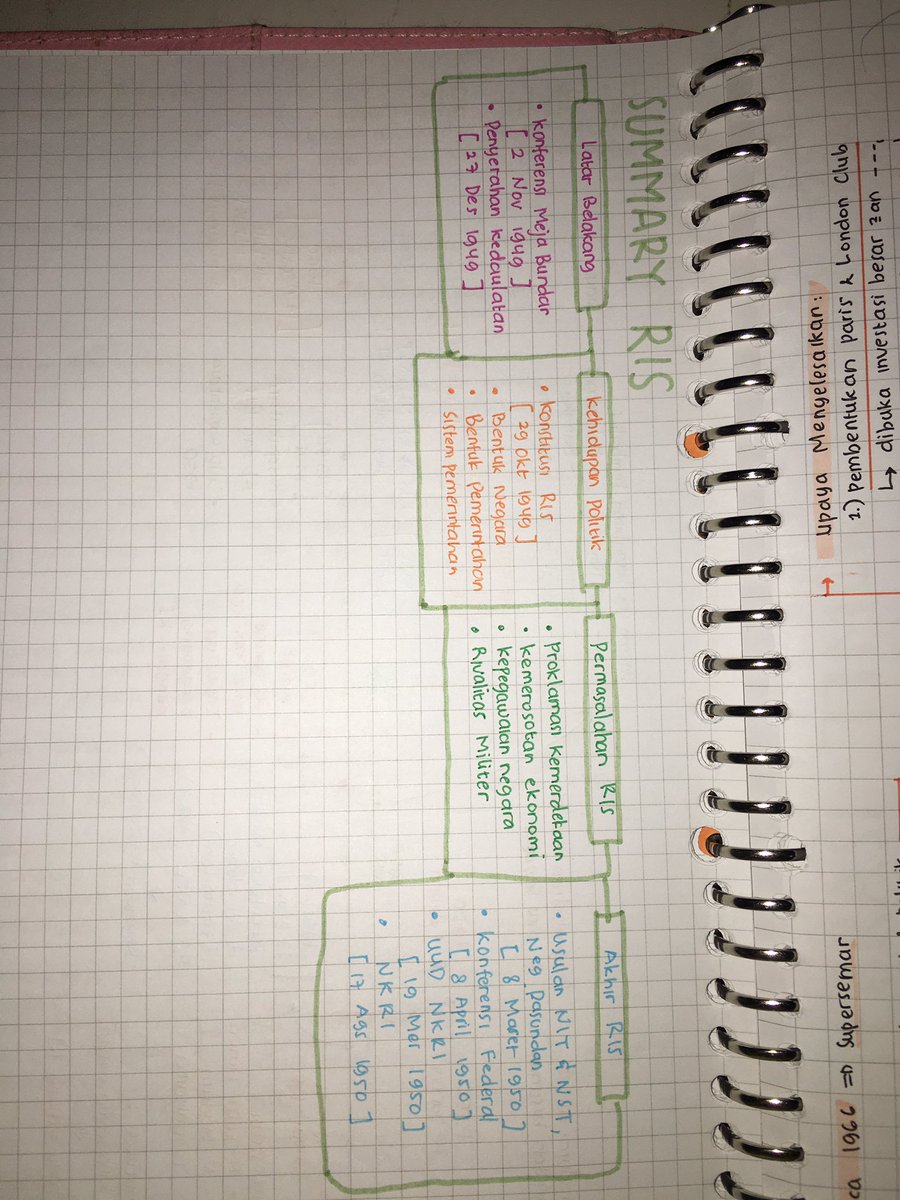 Upaya Menyelesaikan:
2.) pembentukan paris & London Club
↳ dibuka investasi besar zan ---,
1966 ⇒ Supersemar
SUMMARY RIS
Latar Belakang
• Konferensi Meja Bundar
[ 2 Nov 1949 ]
• Penyerahan kedaulatan
[ 27 Des 1949 ]
Kehidupan Politik
• Konstitusi RIS
[ 29 Okt 1949 ]
• Bentuk Negara
• Bentuk pemerintahan
• Sistem pemerintahan
Permasalahan RIS
• Proklamasi kemerdekaan
• kemerosotan ekonomi
• kepegawaian negara
• Rivalitas Militer
Akhir RIS
• Usulan NIT & NST,
Neg Pasundan
[ 8 Maret 1950 ]
• Konferensi Federal
[ 8 April 1950 ]
• UUD NKRI
[ 19 Mei 1950 ]
• NKRI
[ 17 Ags 1950 ]